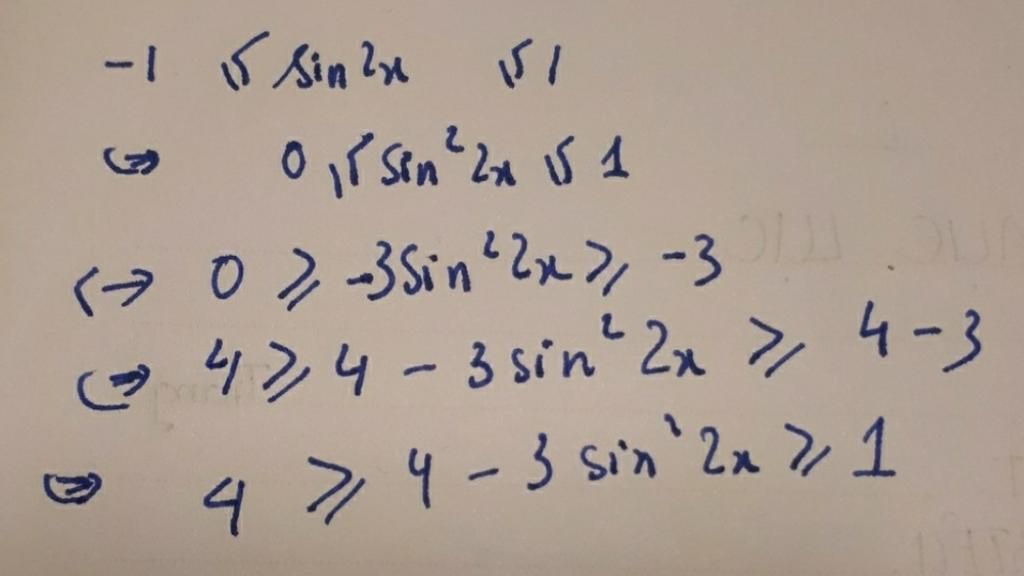 -1 ≤ sin 2x ≤ 1
↔ 0 ≤ sin² 2x ≤ 1
↔ 0 ≥ -3 sin² 2x ≥ -3
↔ 4 ≥ 4 - 3 sin² 2x ≥ 4 - 3
↔ 4 ≥ 4 - 3 sin² 2x ≥ 1